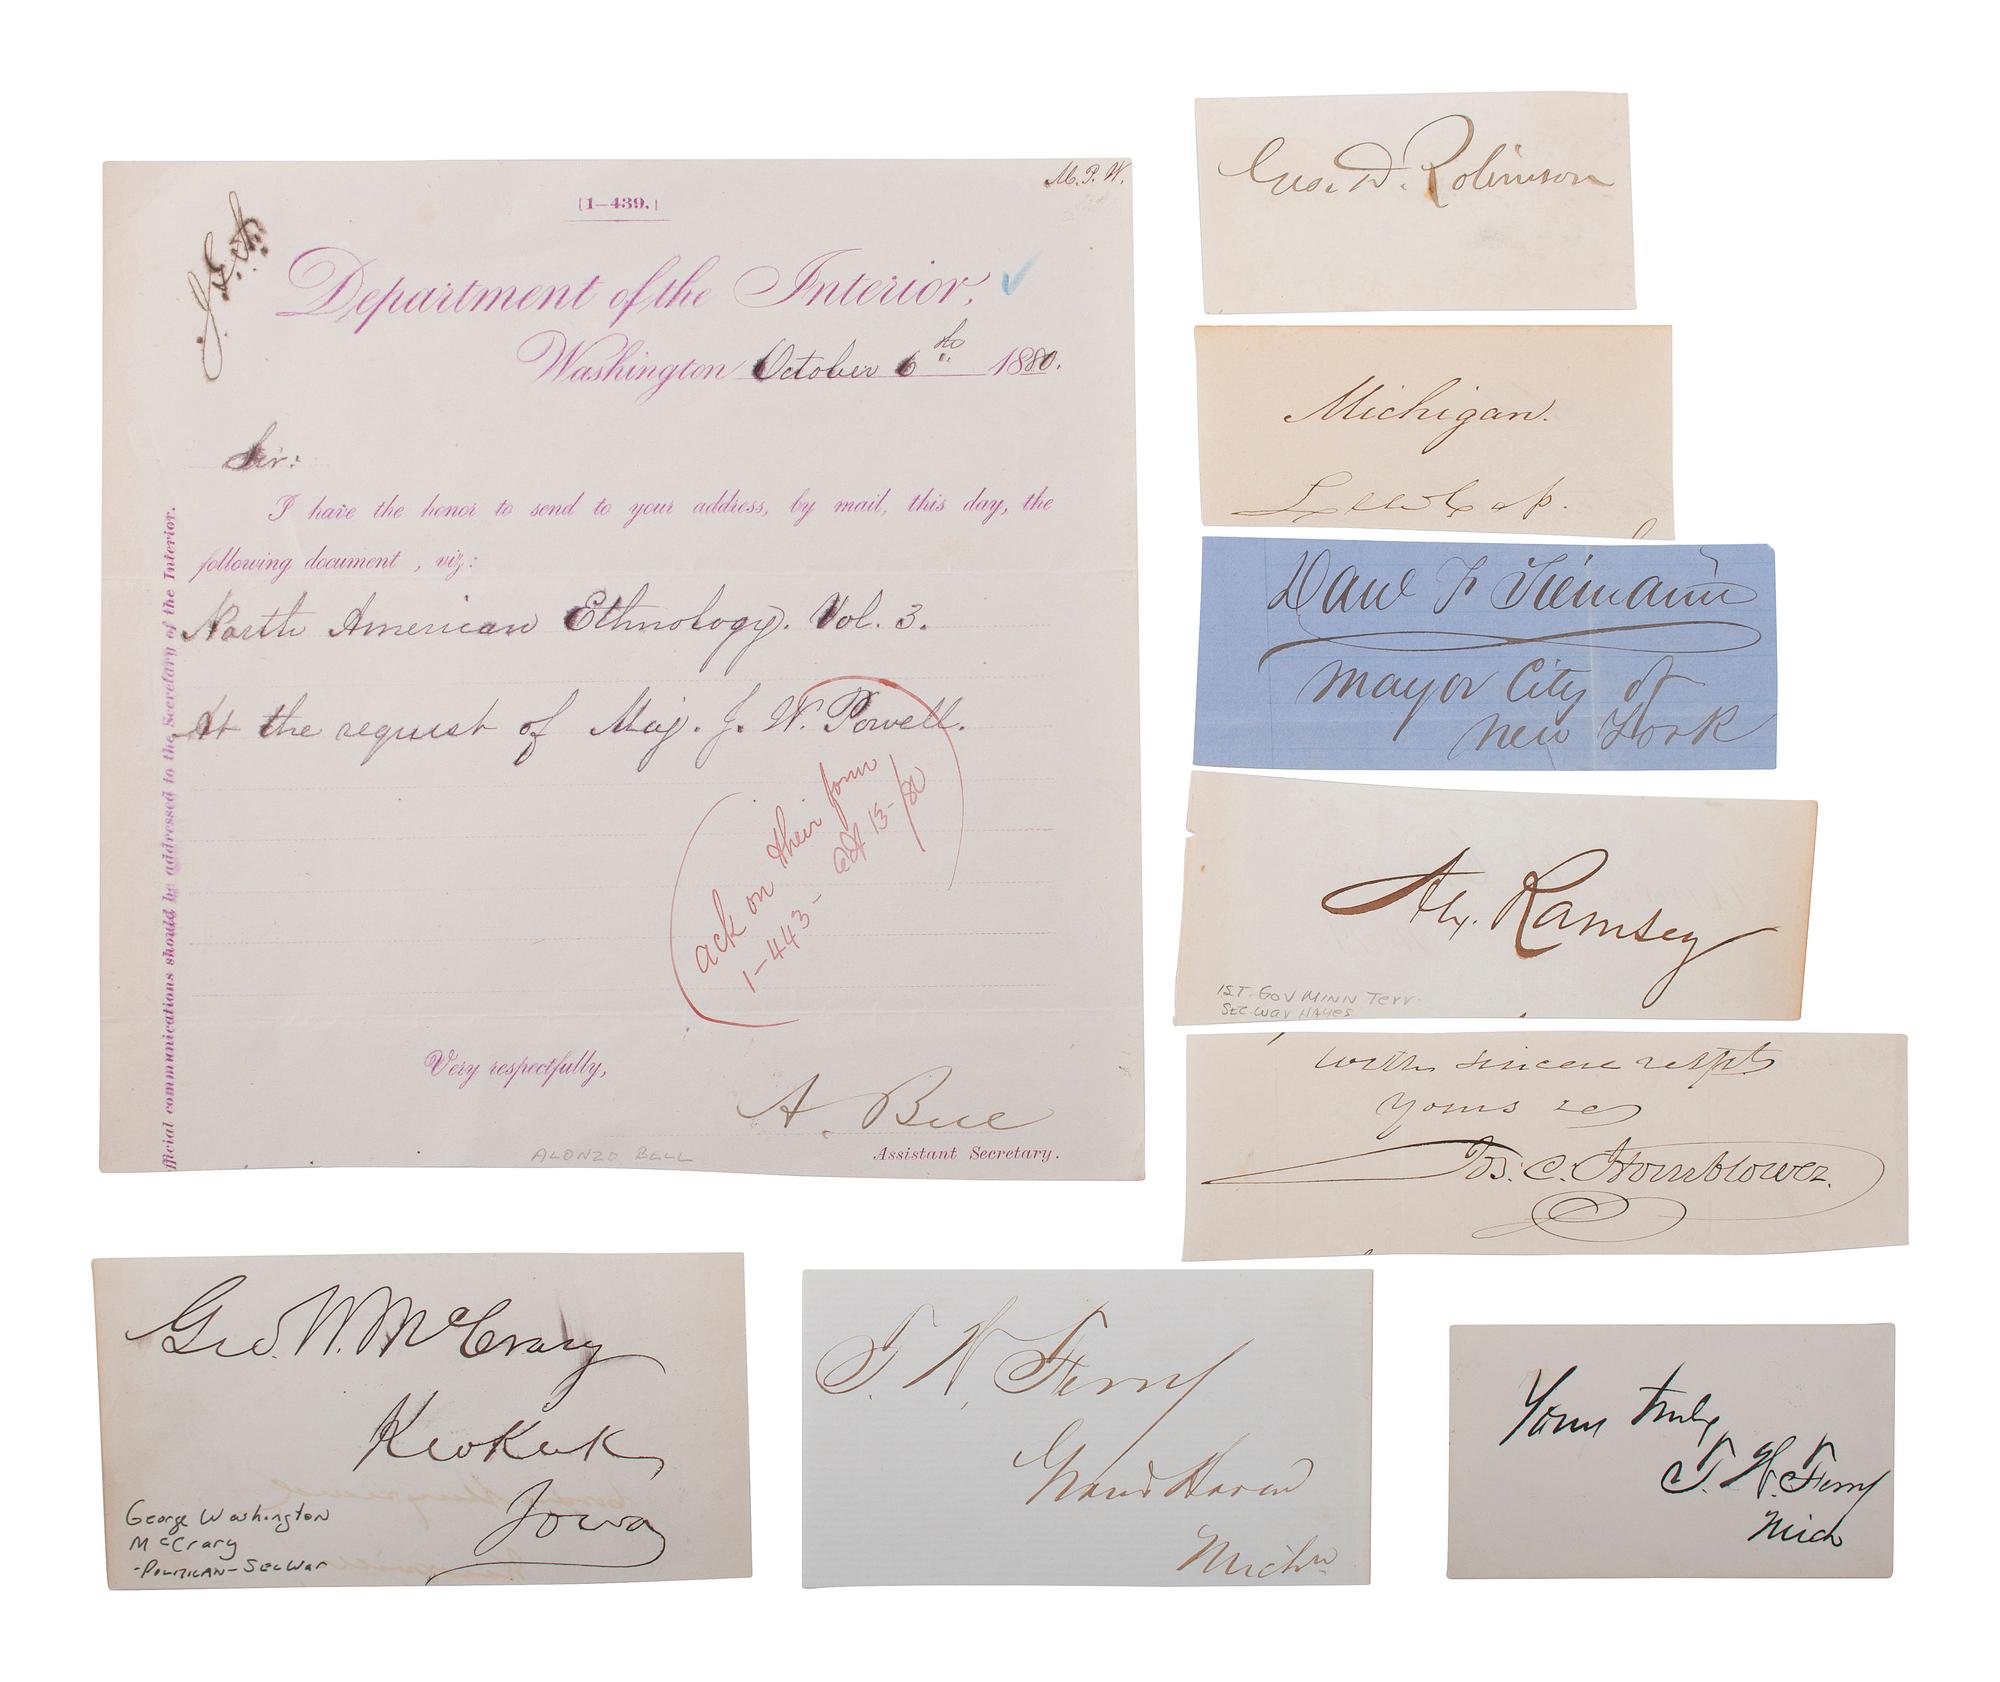 M. P. W.
[1—439.]
Department of the Interior,
Washington October 6th 1880.
Sir:
I have the honor to send to your address, by mail, this day, the
following document , viz:
North American Ethnology. Vol. 3.
At the request of Maj. J. W. Powell.
ack on their form
1-443- Oct 13-/80
Very respectfully,
A. Bell
ALONZO BELL
Assistant Secretary.
fficial communications should be addressed to the Secretary of the Interior.
Geo. D. Robinson
Michigan.
Lew Cass.
Danl F Tiemann
Mayor City of
New York
Alex. Ramsey
1ST. GOV MINN Terr.
SEC. WAR HAYES
with sincere respts
yours &c
Jos. C. Hornblower.
Geo. W. McCrary
Keokuk
Iowa
George Washington
McCrary
-POLITICAN- SEC WAR
T. W. Ferry
Grand Haven
Michn
Yours truly
T. W. Ferry
Mich